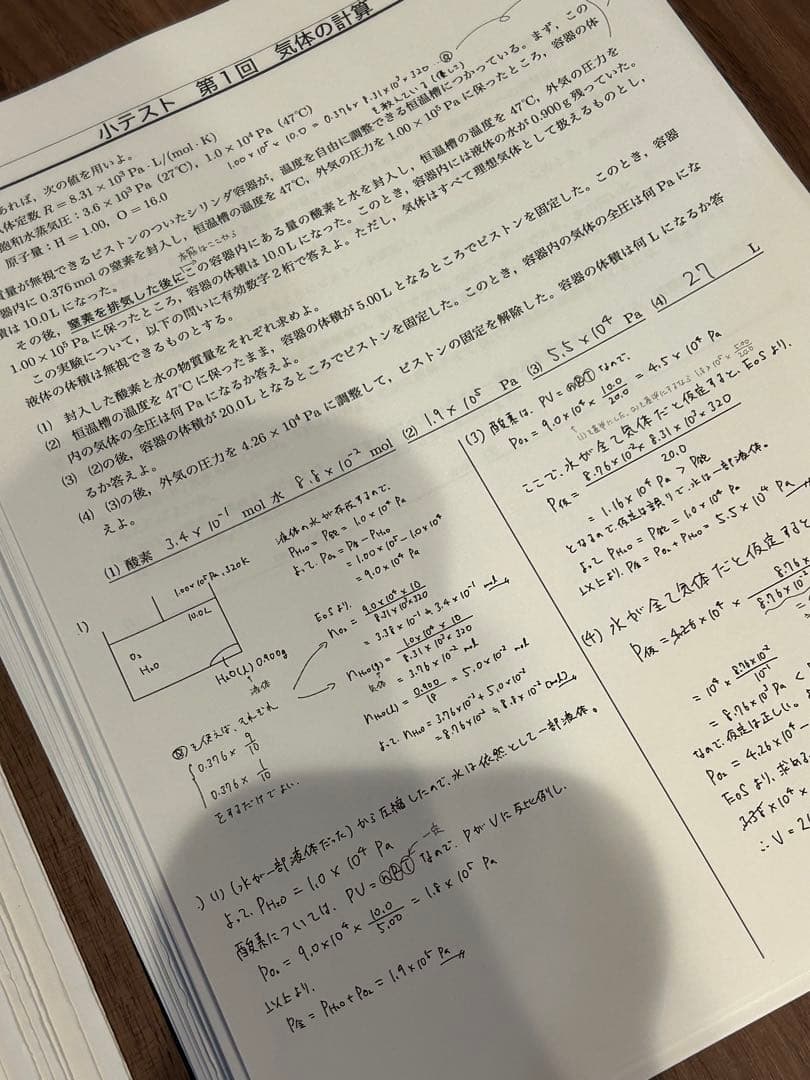 小テスト 第1回 気体の計算
あれば、次の値を用いよ。
気体定数 R = 8.31 × 10³ Pa・L/(mol・K)
飽和水蒸気圧：3.6 × 10³ Pa (27℃), 1.0 × 10⁴ Pa (47℃)
原子量：H = 1.00, O = 16.0
1.00×10⁵ × 10.0 = 0.376 × 8.31×10³×320 …
を教えている(優しさ)
質量が無視できるピストンのついたシリンダ容器が、温度を自由に調整できる恒温槽につかっている。まず、この
器内に 0.376 mol の窒素を封入し、恒温槽の温度を 47℃、外気の圧力を
積は 10.0 L になった。
本題はここから
その後、窒素を排気した後にこの容器内にある量の酸素と水を封入し、恒温槽の温度を 47℃、外気の圧力を
1.00 × 10⁵ Pa に保ったところ、容器の体積は 10.0 L になった。このとき、容器内には液体の水が 0.900 g 残っていた。
この実験について、以下の問いに有効数字 2 桁で答えよ。ただし、気体はすべて理想気体として扱えるものとし、
液体の体積は無視できるものとする。
(1) 封入した酸素と水の物質量をそれぞれ求めよ。
(2) 恒温槽の温度を 47℃ に保ったまま、容器の体積が 5.00 L となるところでピストンを固定した。このとき、容器
内の気体の全圧は何 Pa になるか答えよ。
(3) (2)の後、容器の体積が 20.0 L となるところでピストンを固定した。このとき、容器内の気体の全圧は何 Pa にな
るか答えよ。
(4) (3)の後、外気の圧力を 4.26 × 10⁴ Pa に調整して、ピストンの固定を解除した。容器の体積は何 L になるか答
えよ。
(1) 酸素 3.4 × 10⁻¹ mol 水 8.8 × 10⁻² mol (2) 1.9 × 10⁵ Pa (3) 5.5 × 10⁴ Pa (4) 27 L
1)
1.00×10⁵Pa, 320K
10.0L
O₂
H₂O
H₂O(l) 0.900g
液体
液体の水が存在するので、
P_H₂O = P飽 = 1.0×10⁴ Pa
よって、P_O₂ = P全 − P_H₂O
= 1.00×10⁵ − 1.0×10⁴
= 9.0×10⁴ Pa
EoSより、
n_O₂ = 9.0×10⁴×10 / 8.31×10³×320
= 3.38×10⁻¹ ≒ 3.4×10⁻¹ mol
n_H₂O(g) = 1.0×10⁴×10 / 8.31×10³×320
気体
= 3.76×10⁻² mol
n_H₂O(l) = 0.900 / 18 = 5.0×10⁻² mol
よって、n_H₂O = 3.76×10⁻² + 5.0×10⁻²
= 8.76×10⁻² ≒ 8.8×10⁻² (mol)
を使えば、それぞれ
0.376 × 9/10
0.376 × 1/10
とするだけでよい。
(1) (水が一部液体だった)から圧縮したので、水は依然として一部液体。
よって、P_H₂O = 1.0 × 10⁴ Pa
酸素については、PV = nRT なので、PがVに反比例し、
一定
P_O₂ = 9.0×10⁴ × 10.0/5.00 = 1.8×10⁵ Pa
以上より、
P全 = P_H₂O + P_O₂ = 1.9×10⁵ Pa
(3) 酸素は、PV = nRT なので、
P_O₂ = 9.0×10⁴ × 10.0/20.0 = 4.5×10⁴ Pa
ここで、水が全て気体だと仮定すると、EoSより、
P仮 = 8.76×10⁻²×8.31×10³×320 / 20.0
= 1.16×10⁴ Pa > P飽
となるので仮定は誤りで、水は一部液体。
よって P_H₂O = P飽 = 1.0×10⁴ Pa
以上より、P全 = P_O₂ + P_H₂O = 5.5×10⁴ Pa
(4) 水が全て気体だと仮定すると
P仮 = 4.26×10⁴ × 8.76
= 8.76×10³ Pa <
なので、仮定は正しい。
P_O₂ = 4.26×10⁴ −
EoSより、求める
∴ V = 2